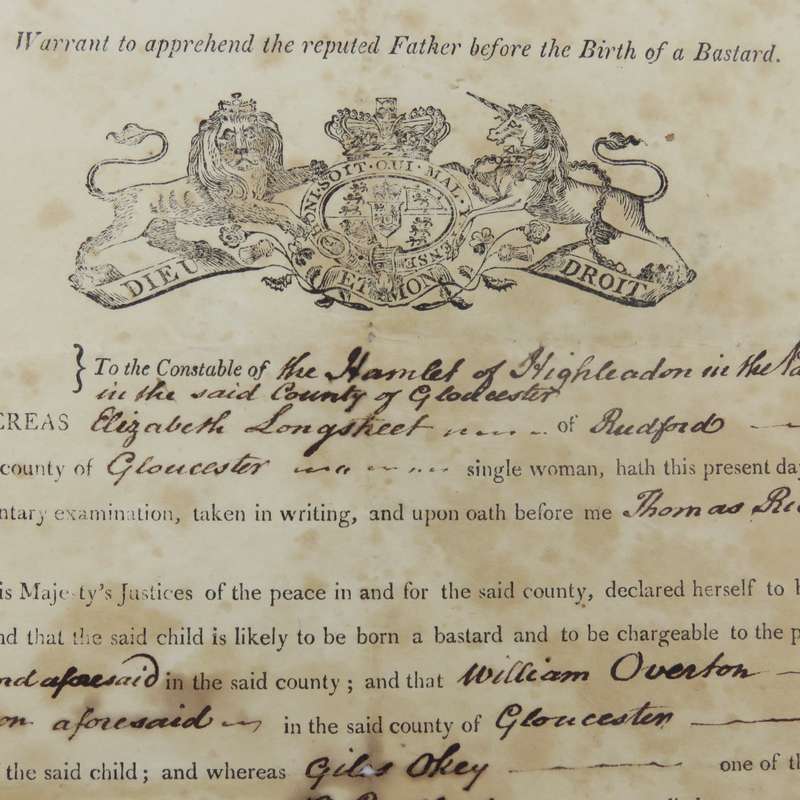 Warrant to apprehend the reputed Father before the Birth of a Bastard.
HONI·SOIT·QUI·MAL·Y
ENSE
DIEU ET MON DROIT
To the Constable of the Hamlet of Highleadon in the
in the said County of Gloucester
EREAS Elizabeth Longstreet of Rudford
county of Gloucester single woman, hath this present day
ntary examination, taken in writing, and upon oath before me Thomas
is Majesty's Justices of the peace in and for the said county, declared herself to
nd that the said child is likely to be born a bastard and to be chargeable to the p
aforesaid in the said county; and that William Overton
on aforesaid in the said county of Gloucester
the said child; and whereas Giles Okey one of th